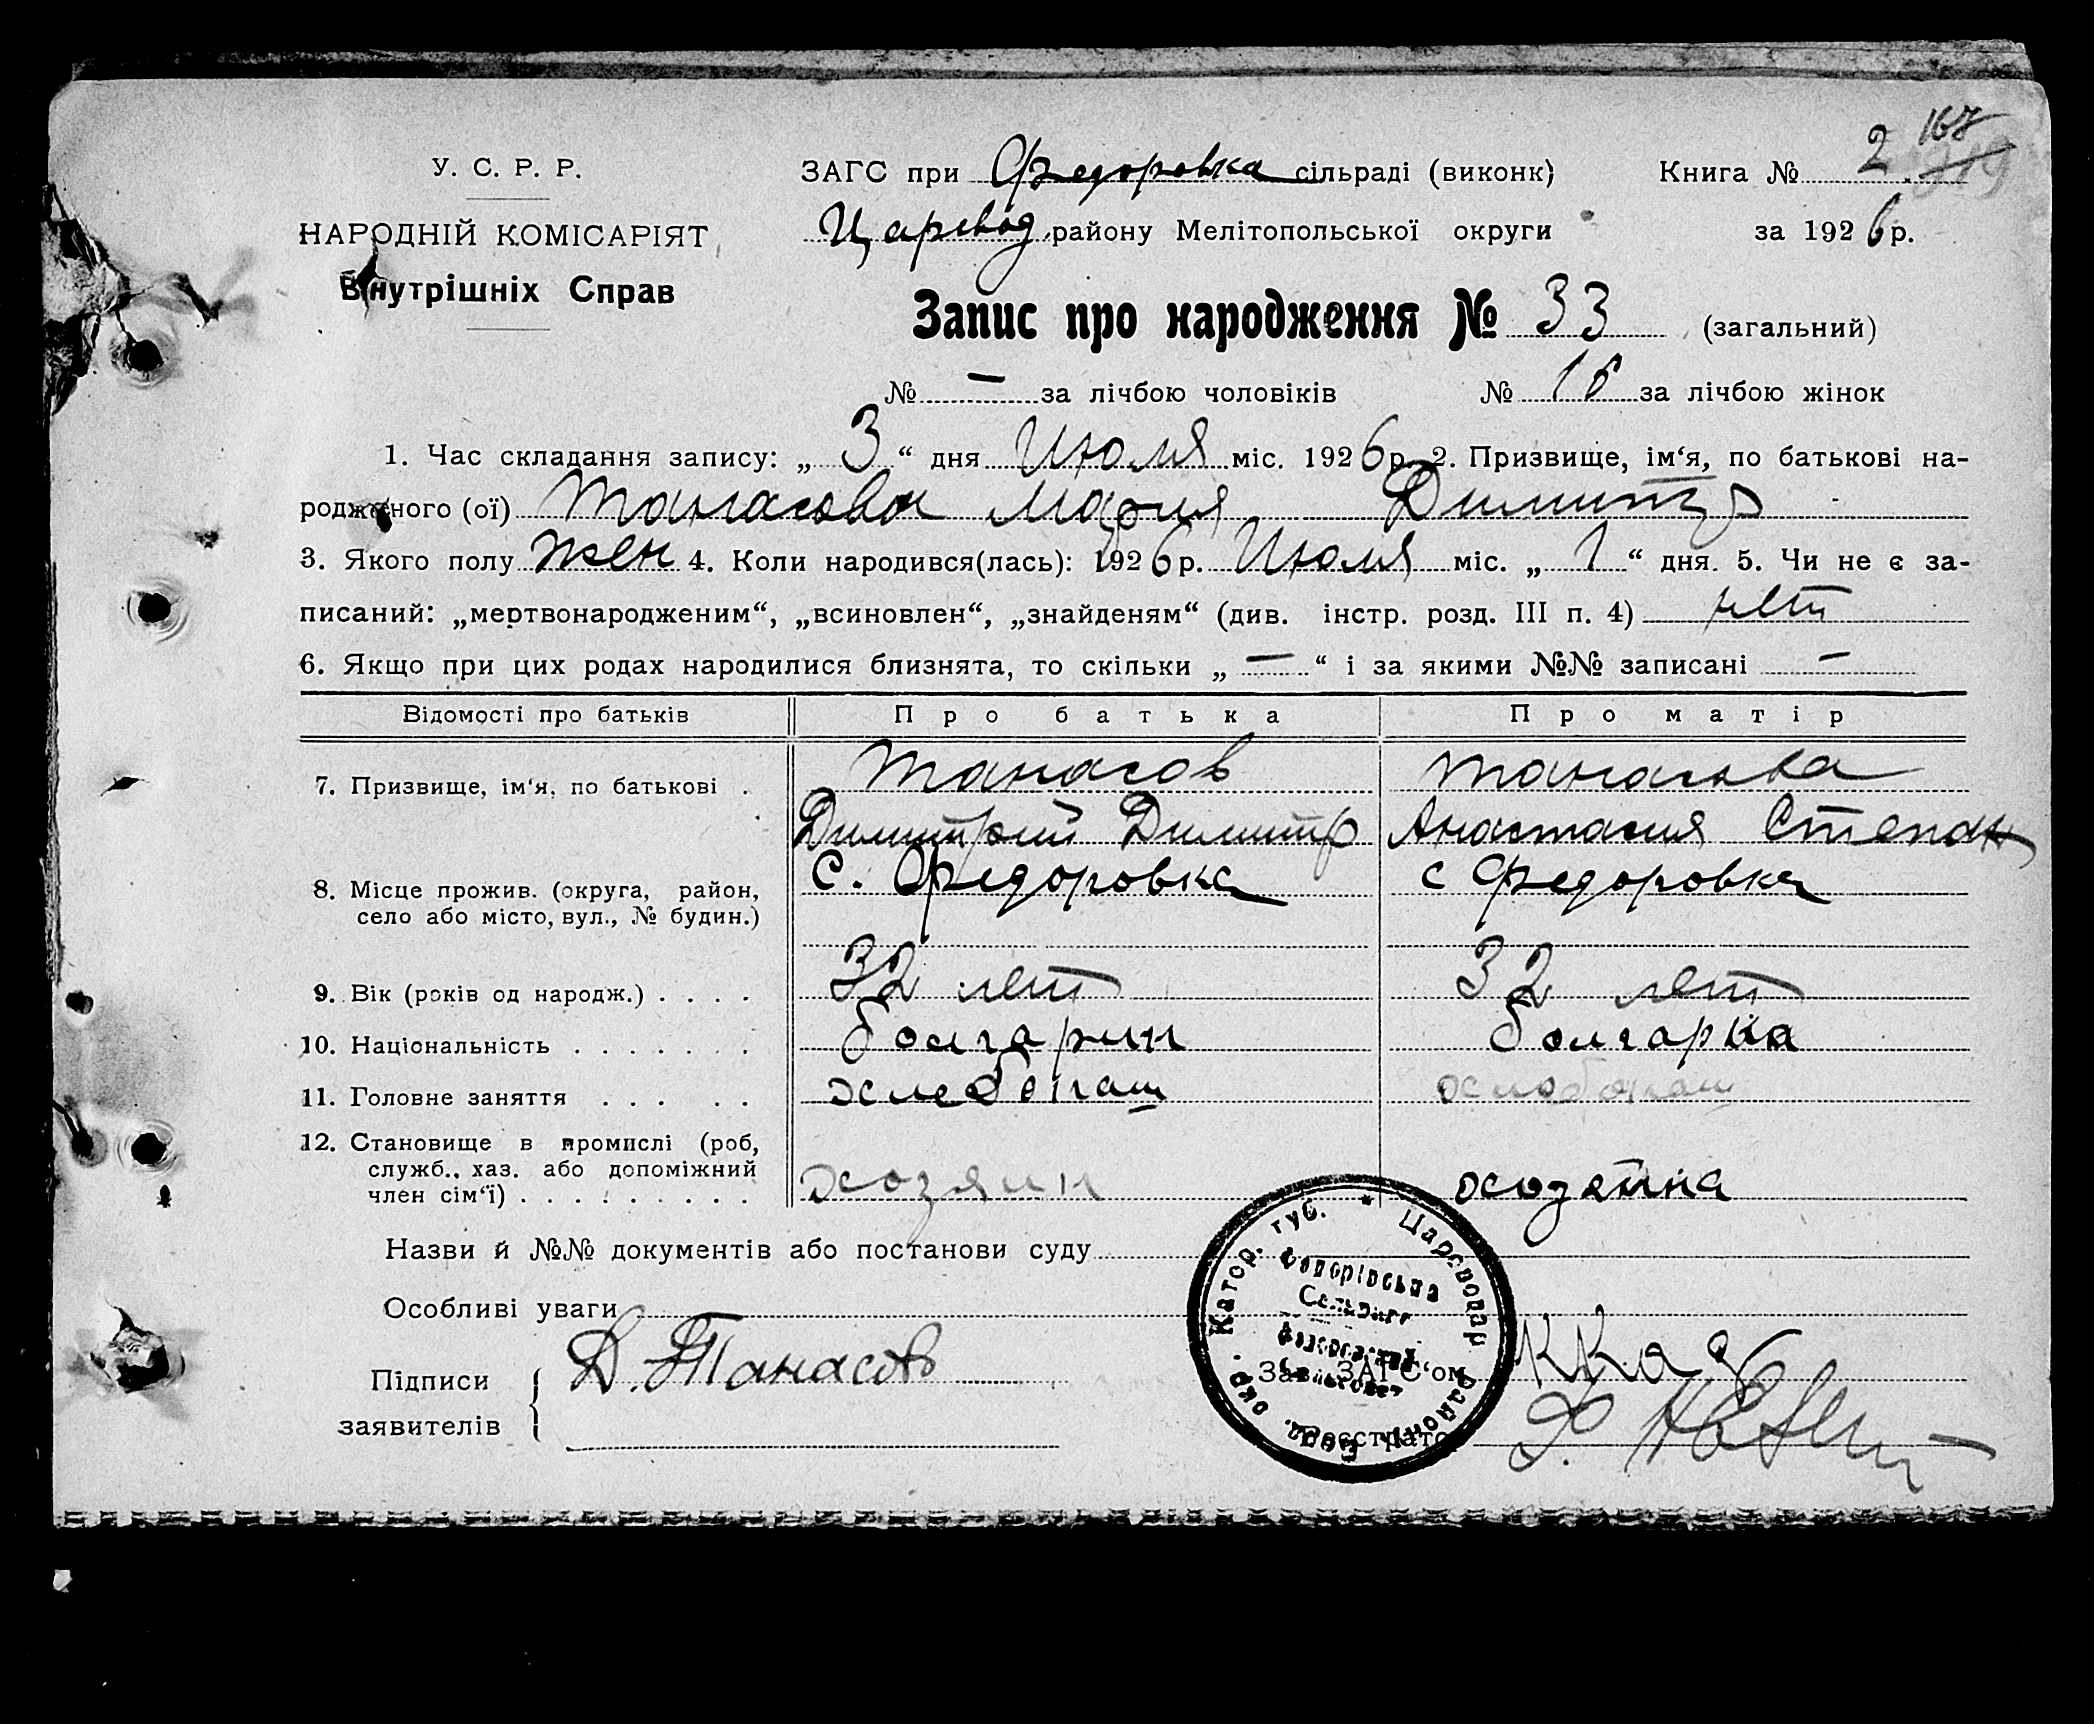 У. С. Р. Р.
НАРОДНІЙ КОМІСАРІЯТ
Внутрішніх Справ
ЗАГС при Федоровка сільраді (виконк)
Книга № 2 167
Царевод району Мелітопольської округи за 1926 р.
Запис про народження № 33 (загальний)
№ — за лічбою чоловіків № 16 за лічбою жінок
1. Час складання запису: „3“ дня Июля міс. 1926 р. 2. Призвище, ім‘я, по батькові на-
родженого (ої) Танасова Мария Димитр
3. Якого полу жен 4. Коли народився(лась): 1926 р. Июля міс. „1“ дня. 5. Чи не є за-
писаний: „мертвонародженим“, „всиновлен“, „знайденям“ (див. інстр. розд. III п. 4) нет
6. Якщо при цих родах народилися близнята, то скільки „—“ і за якими №№ записані —
Відомості про батьків Про батька Про матір
7. Призвище, ім‘я, по батькові . Танасов Танасова
Димитрий Димитр Анастасия Степан
8. Місце прожив. (округа, район, С. Федоровка с Федоровка
село або місто, вул., № будин.)
9. Вік (років од народж.) . . . . 32 лет 32 лет
10. Національність . . . . . . . болгарин болгарка
11. Головне заняття . . . . . хлебопаш хлебопаш
12. Становище в промислі (роб,
служб., хаз. або допоміжний
член сім‘ї) . . . . . . . . . хозяин
Назви й №№ документів або постанови суду
Особливі уваги
Підписи
заявителів
Д. Танасов
Зав. ЗАГС‘ом
Реєстратор
Катор. губ. * Цареводар